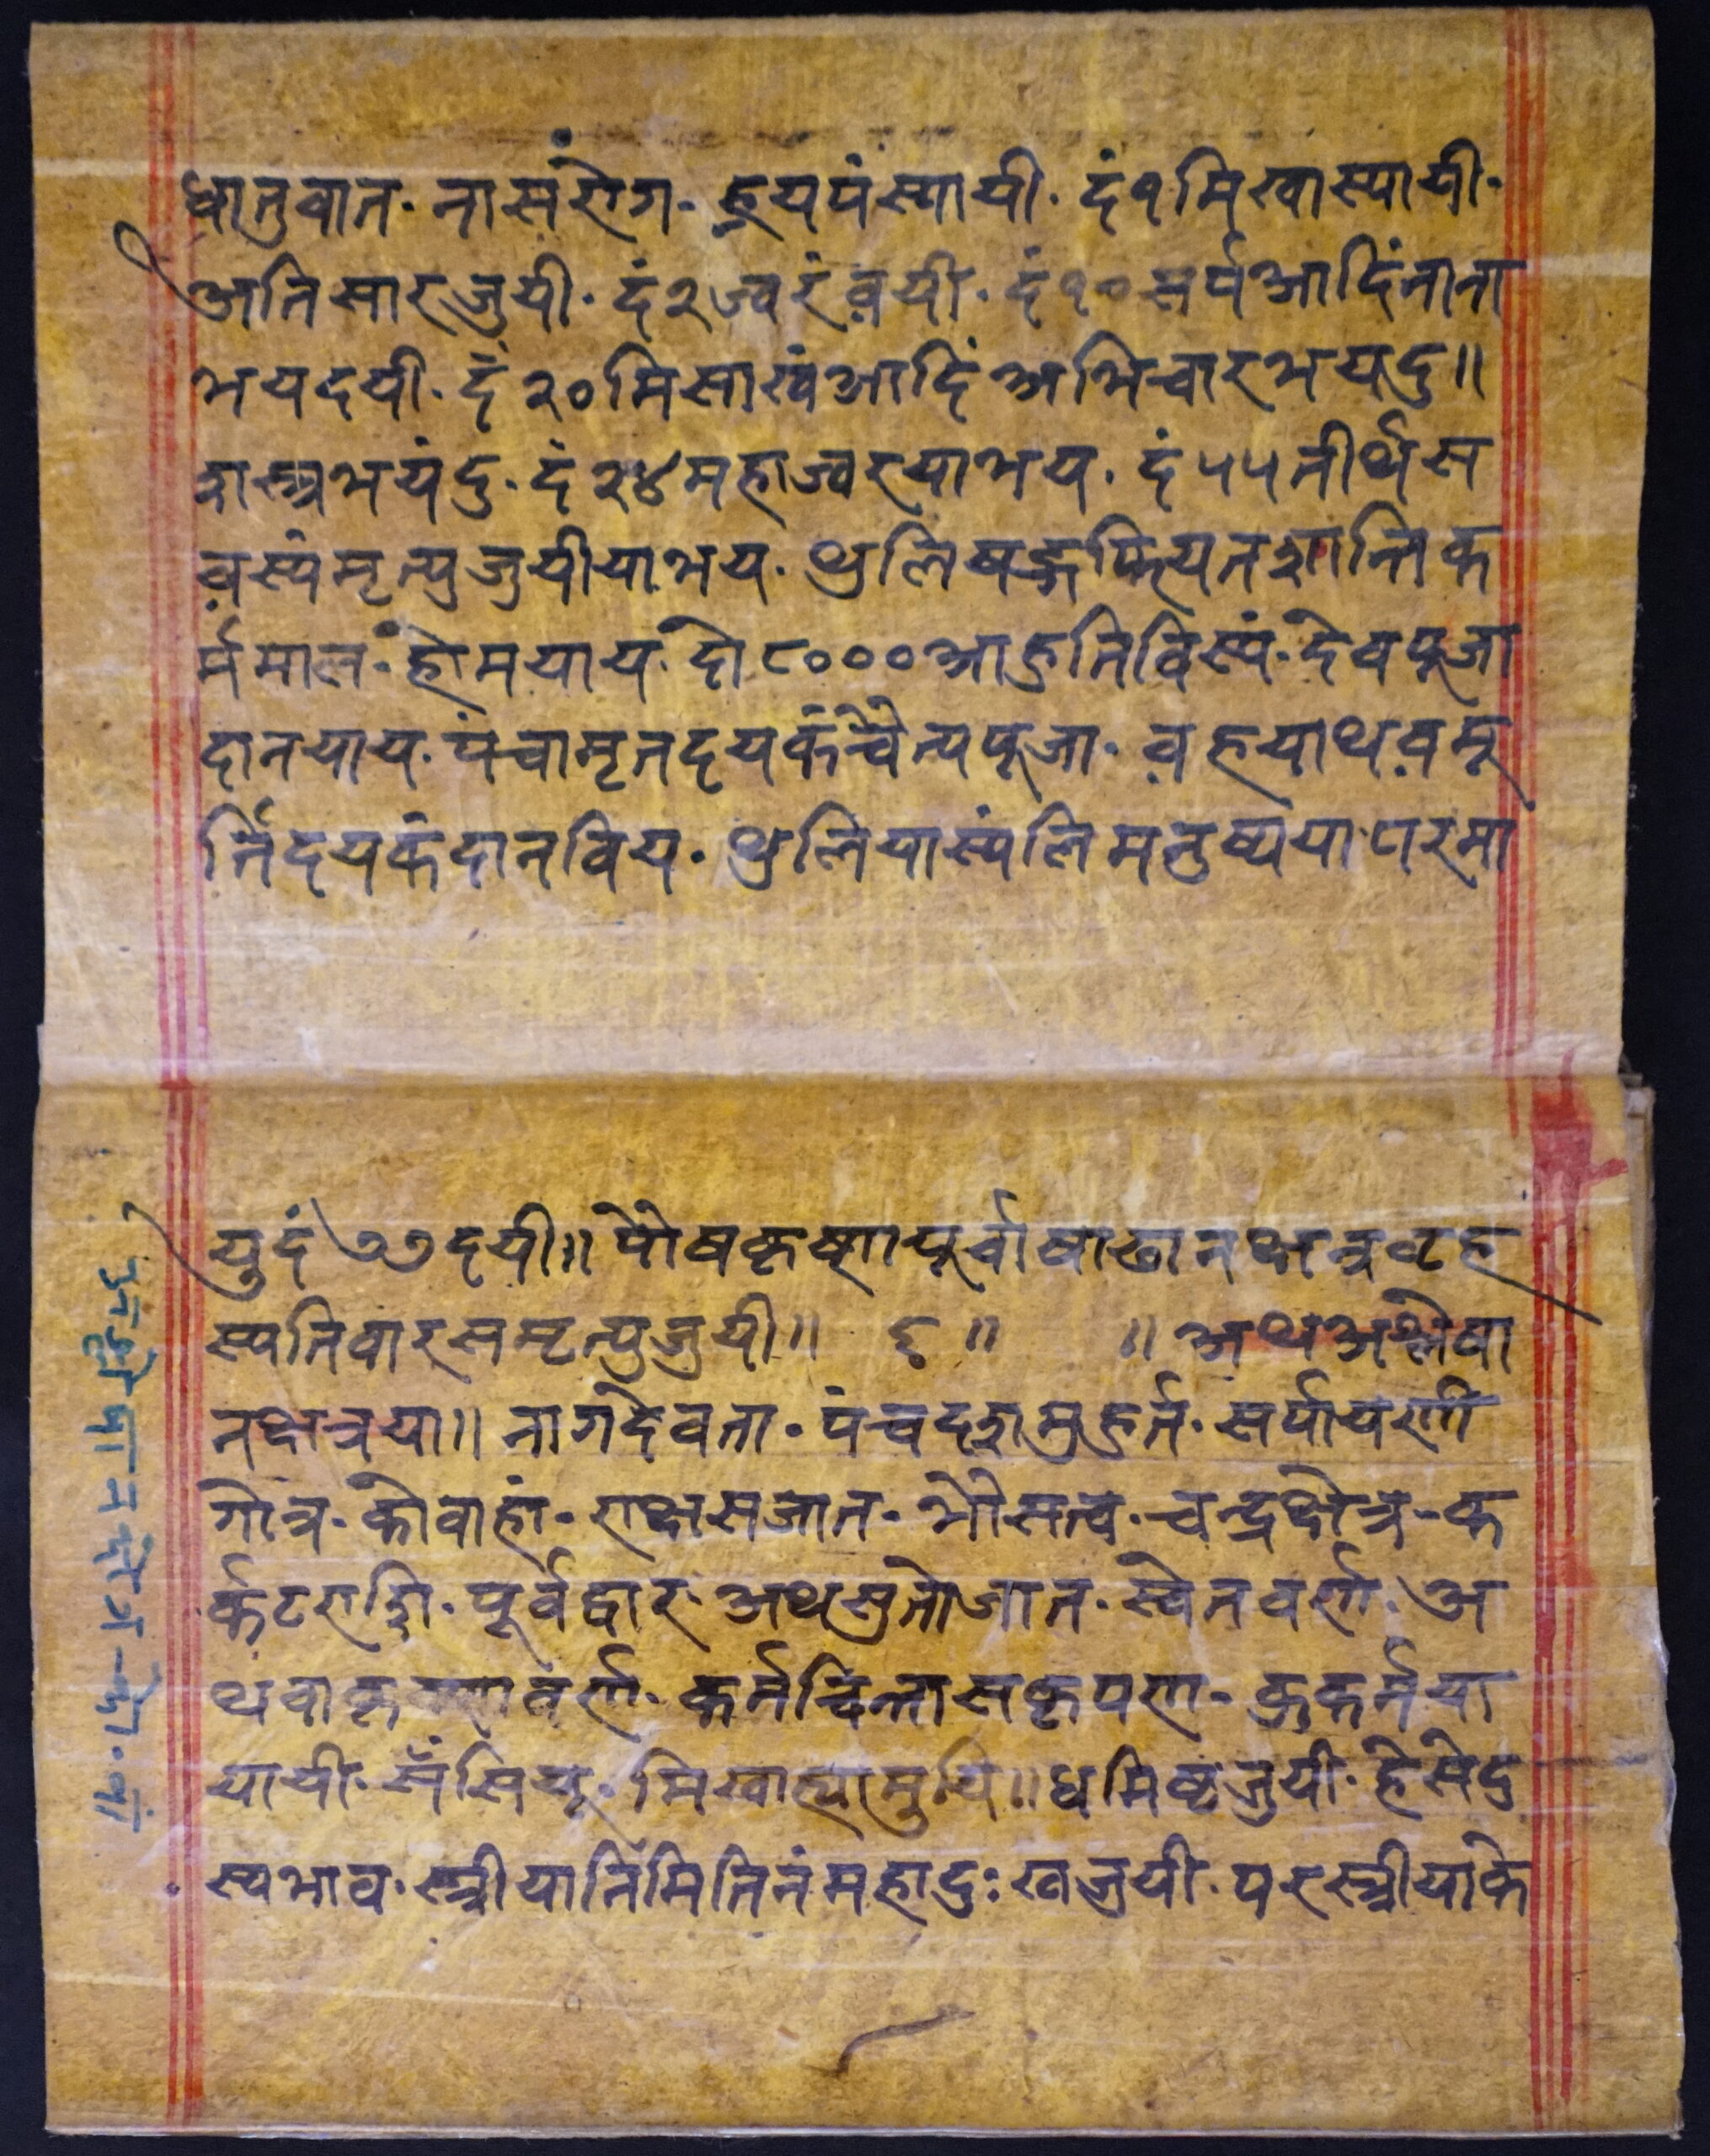 धातुवात. नासंरोग. हूयपंस्यायी. दं१मिखास्यायी.
अतिसारजुयी. दं२ज्वरंव़यी. दं१०सर्पआदिंनाना
भयदयी. दं२०मिसाखंआदिं अभिचारभयदु॥
शस्त्रभयंदु. दं२४महाज्वरयाभय. दं५५तीर्थस
व़स्यंमृत्युजुयीयाभय. थुलि शान्तिक
र्ममाल. होमयाय. दो८०००आहुतिविस्यं. देवपूजा
दानयाय. पंचामृतदयकंचैत्यपूजा. व़ह्रयाथव़मू
र्त्तिदयकंदानविय. थुलियास्यंलिमनुष्ययापरमा
युदं७७दयी॥ पौषकृष्णपूर्वाषाढानक्षत्रवृह
स्पतिवारसमृत्युजुयी॥ ६॥ ॥अथअश्लेषा
नक्षत्रया॥ नागदेवता. पंचदशमुहुर्त. सर्पायणी
गोत्र. कोवाहां. राक्षसजात. भौसत्व. चन्द्रक्षेत्र. क
र्क्कटराशि. पूर्वद्वार. अथसुतोजात. स्वेतवर्ण. अ
थवाकृष्णवर्ण. कर्तचिन्तासकृपण. कुकर्तया
यायी. मिखाह्यामुयि॥धमिष्टजुयी. हेसेदु
स्वभाव. स्त्रीयानिमितिनंमहादुःखजुयी. परस्त्रीयाके